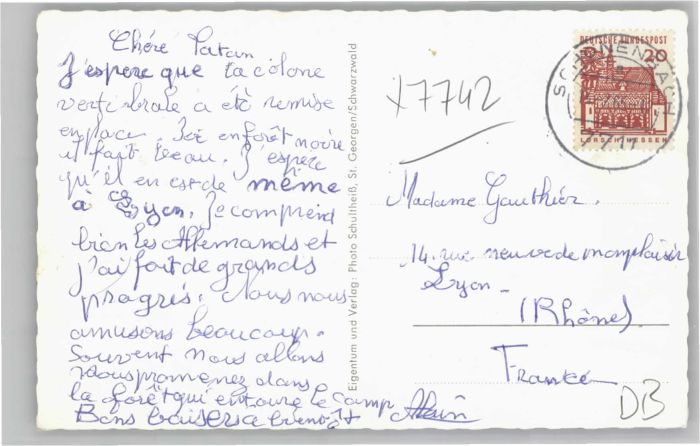 Chéré Tatan
J'espere que ta colone
vertibrale a été remise
en place. Ici en forêt noire
il fait beau. J'espere
qu'il en est de même
à Lyon. Je comprend
bien les Allemands et
j'ai fait de grands
progrés. Nous nous
amusons beaucoup.
Souvent nous allons
nous promenez dans
la forêt qui entoure le camp
Bons baisers à bientôt Alain
Eigentum und Verlag: Photo Schultheiß, St. Georgen/Schwarzwald
X7742
DEUTSCHE BUNDESPOST
20
LORSCH/HESSEN
SCHÖNENBACH
Madame Gauthier.
14. rue neuve de monplaisir
Lyon-
(Rhône).
France
DB